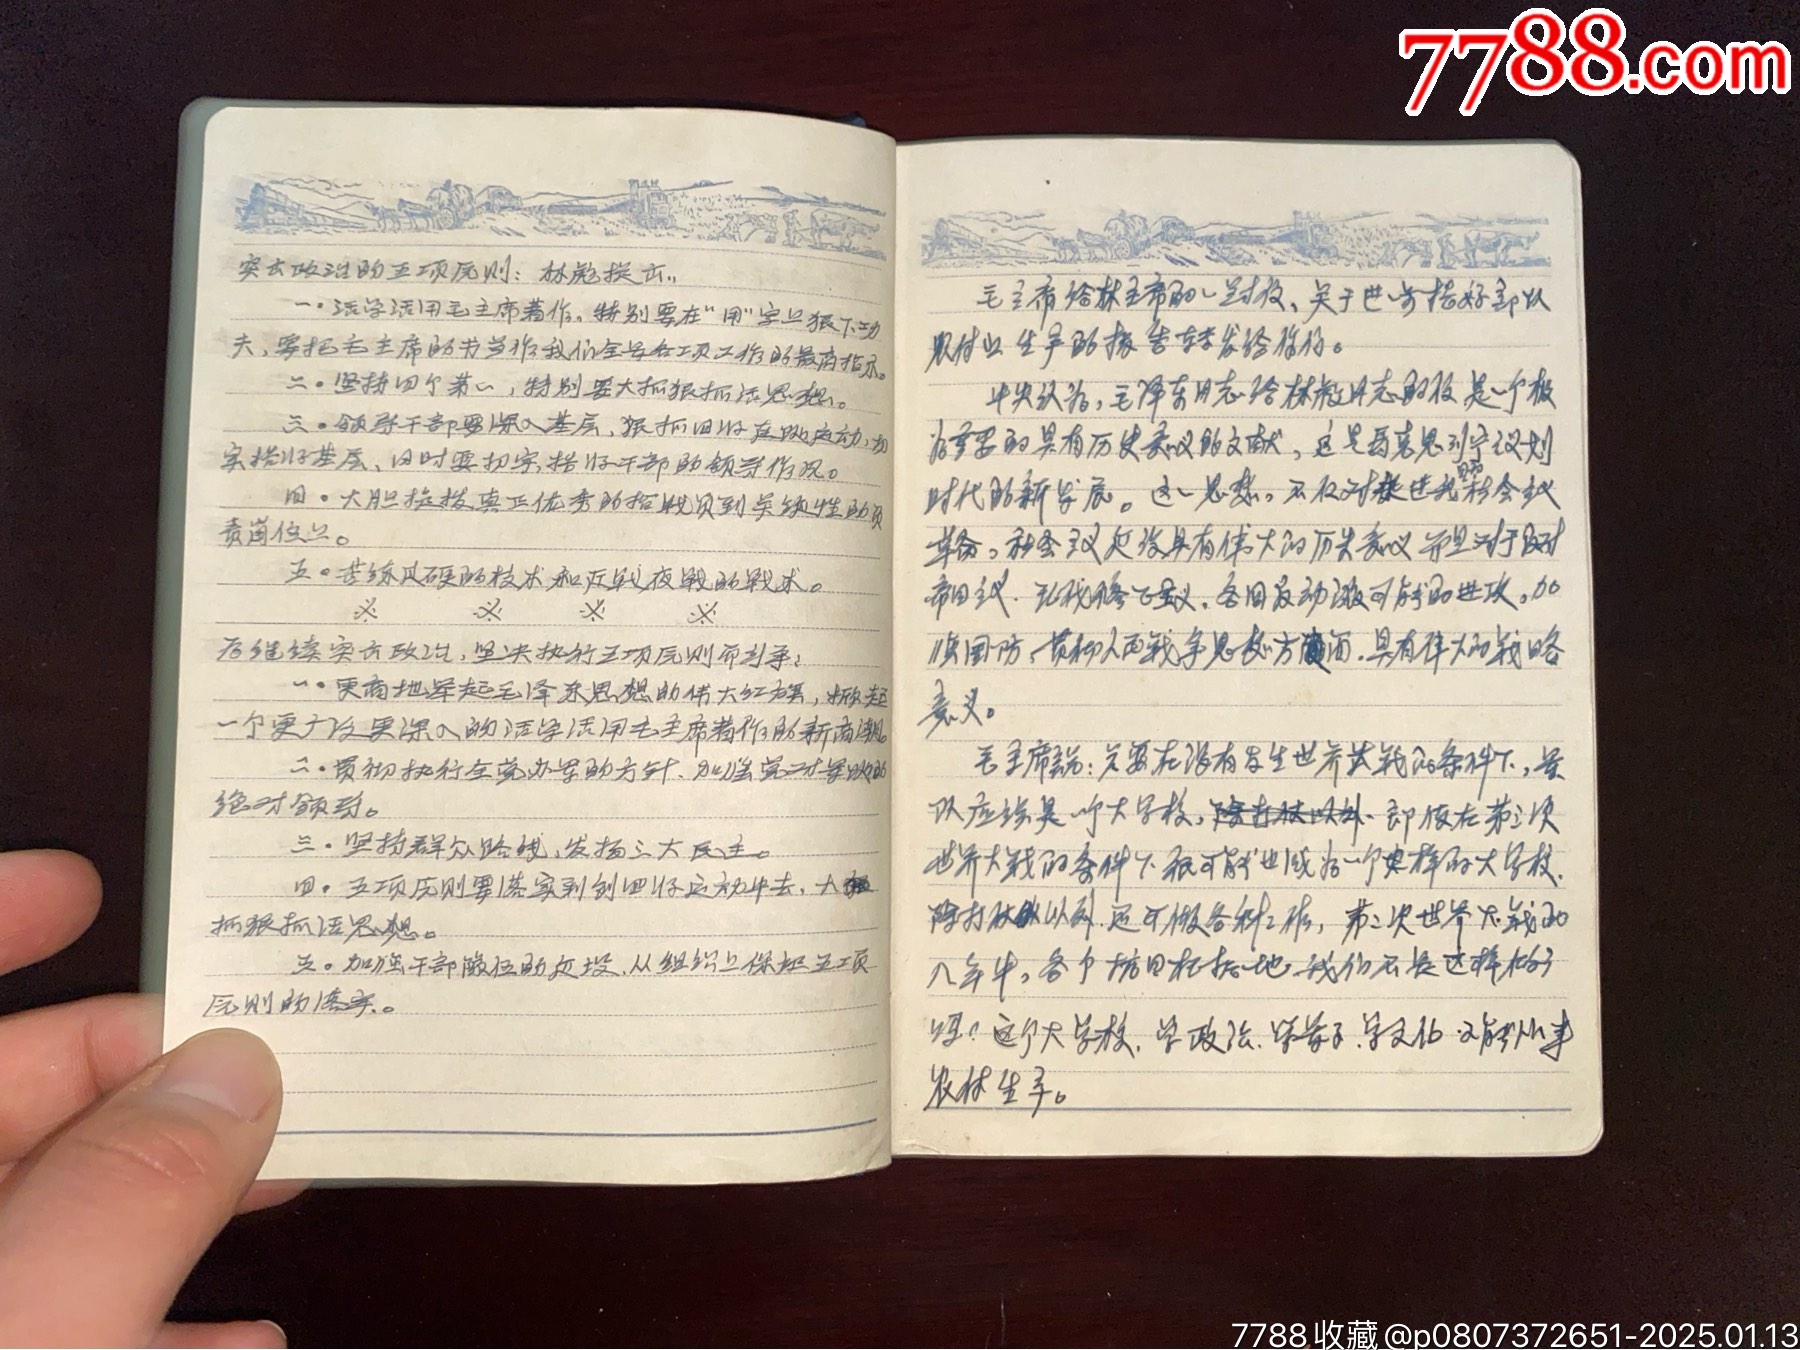 7788.com
突出政治的五项原则：林彪提出。
一·活学活用毛主席著作。特别要在“用”字上狠下功
夫，要把毛主席的书当作我们全军各项工作的最高指示。
二·坚持四个第一，特别要大抓狠抓活思想。
三·领导干部要深入基层，狠抓四好运动，切
实搞好基层、同时要切实搞好干部的领导作风。
四·大胆提拔真正优秀的指战员到关键性的负
责岗位上。
五·苦练过硬的技术和近战夜战的战术。
※ ※ ※ ※
为继续突出政治，坚决执行五项原则而斗争：
一·更高地举起毛泽东思想的伟大红旗，掀起
一个更广泛更深入的活学活用毛主席著作的新高潮。
二·贯彻执行全党办军的方针、加强党对军队的
绝对领导。
三·坚持群众路线，发扬三大民主。
四·五项原则要落实到创四好运动中去，大
抓狠抓活思想。
五·加强干部队伍的建设、从组织上保证五项
原则的落实。
毛主席给林主席的一封信、关于进一步搞好部队
农付业生产的报告转发给你们。
中央认为，毛泽东同志给林彪同志的信是一个极
为重要的具有历史意义的文献，这是马克思列宁主义划
时代的新发展。这一思想，不仅对促进我国社会主义
革命，社会主义建设具有伟大的历史意义而且对于反对
帝国主义、现代修正主义、各国反动派可能的进攻，加
强国防，贯彻人民战争思想方面，具有伟大的战略
意义。
毛主席说：只要在没有发生世界大战的条件下，军
队应该是一个大学校，除打仗以外、即使在第三次
世界大战的条件下很可能也成为一个这样的大学校，
除打仗以外还可做各种工作，第二次世界大战的
八年中，各个抗日根据地我们不是这样做了
吗？这个大学校，学政治、学军事、学文化又能从事
农林生产。
7788收藏@p0807372651-2025.01.13